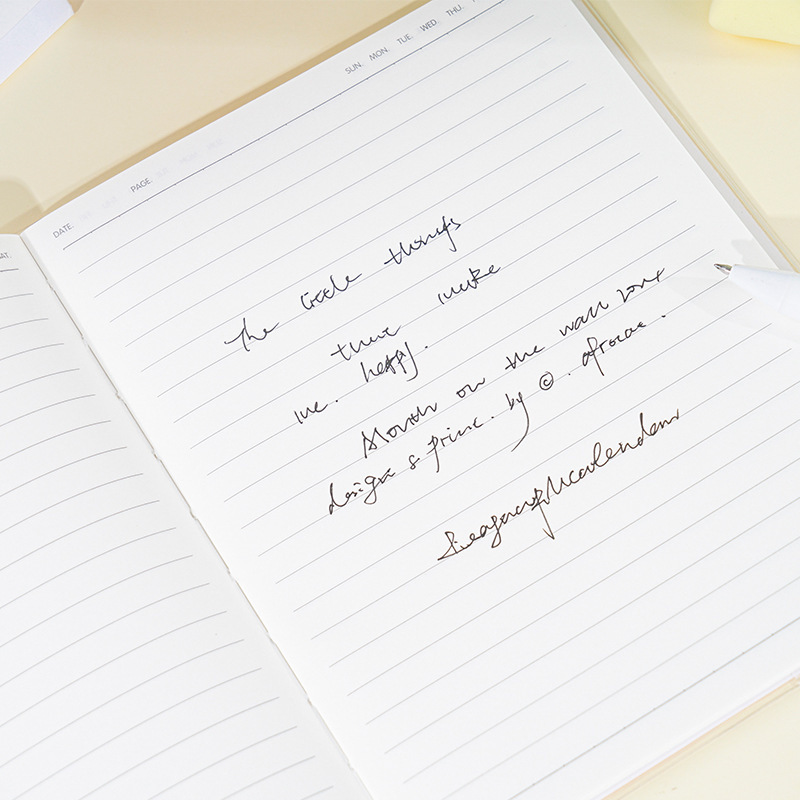 SUN. MON. TUE. WED. THU.
DATE. PAGE.
The little things
that make
me. happy.
Month on the wall
design & print. by ©.